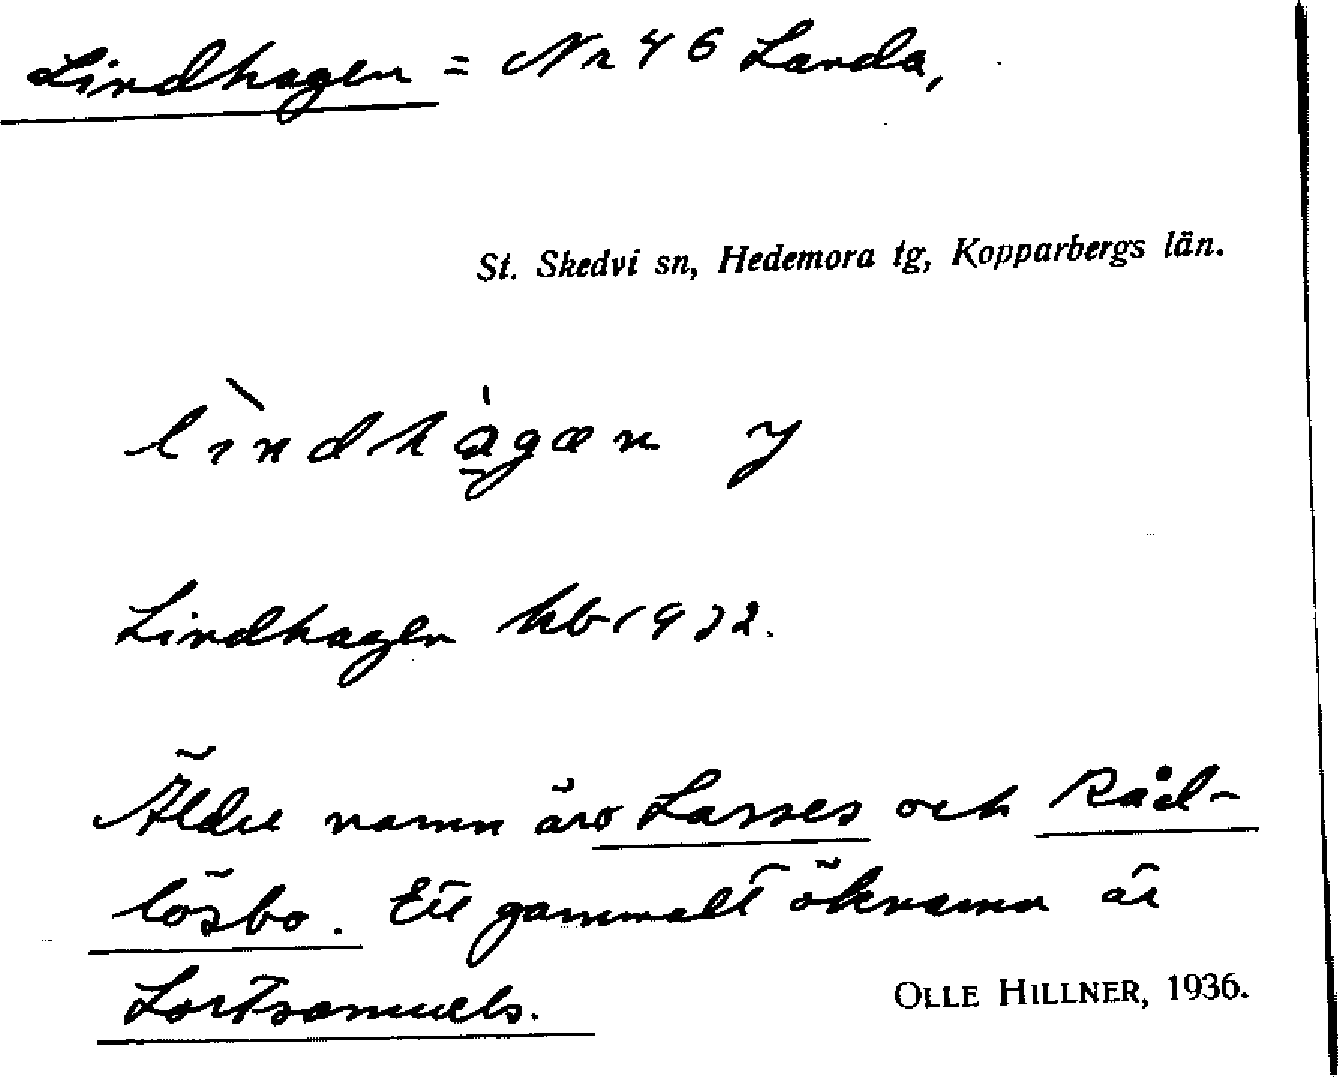 Lindhagen = Nr 46 Landa,
St. Skedvi sn, Hedemora tg, Kopparbergs län.
lìndhàgæn y
Lindhagen kb 1922.
Äldre namn äro Lasses och Råd-
lösbo. Ett gammalt öknamn är
Lortsamuels.
OLLE HILLNER, 1936.